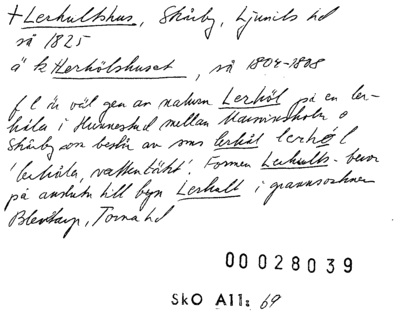 + Lerhultshus, Skårby, Ljunits hd
så 1825
ä k Herhölshuset, så 1804-1808
f l är väl gen av naturn Lerhöl på en ler-
håla i Hunnestad mellan
Skårby som består av sms lerhål lerhól
'lerhåla, vattentäkt'. Formen Lerhults- beror
på anslutn till byn Lerhult i grannsocknen
Blentarp, Torna hd
00028039
SkO A11: 69